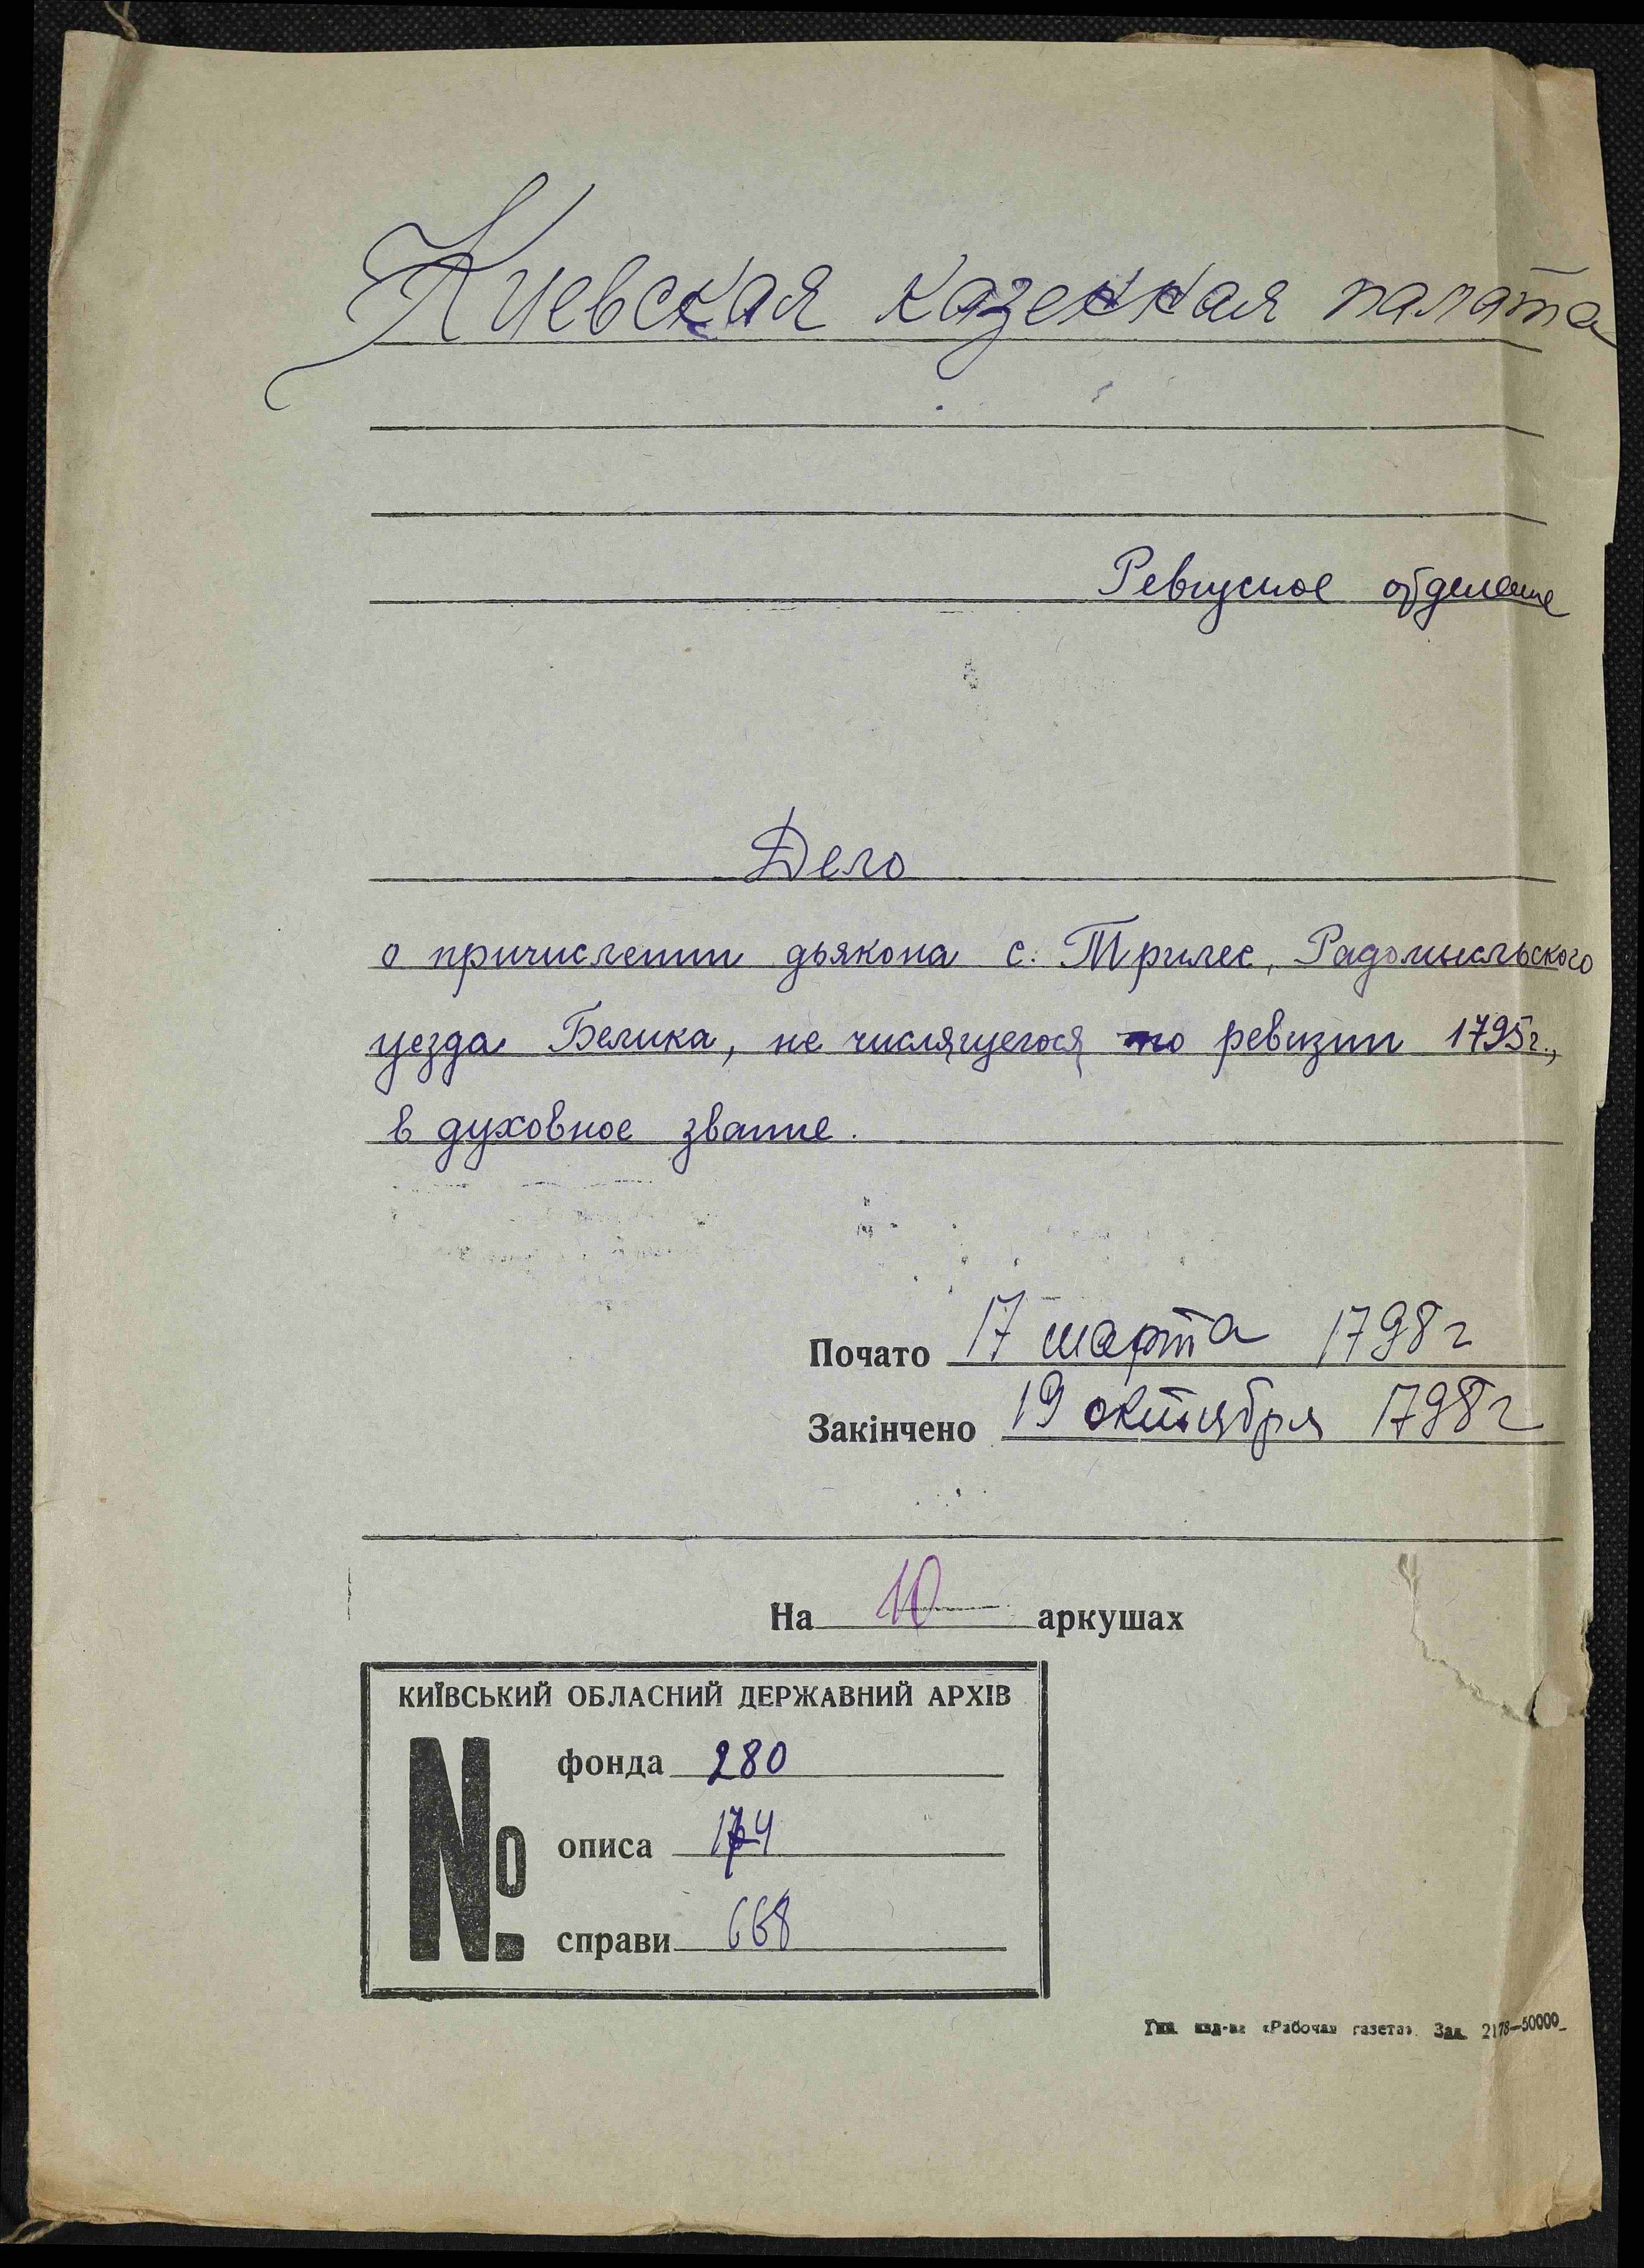 Киевская казенная палата
Ревизское отделение
Дело
о причислении дьякона с. Трилес, Радомысльского
уезда Белика, не числящегося по ревизии 1795г.,
в духовное звание.
Почато 17 марта 1798 г
Закінчено 19 октября 1798 г
На 10 аркушах
КИЇВСЬКИЙ ОБЛАСНИЙ ДЕРЖАВНИЙ АРХІВ
№
фонда 280
описа 174
справи 668
Тип. изд-ва «Рабочая газета». Зак. 2178—50000